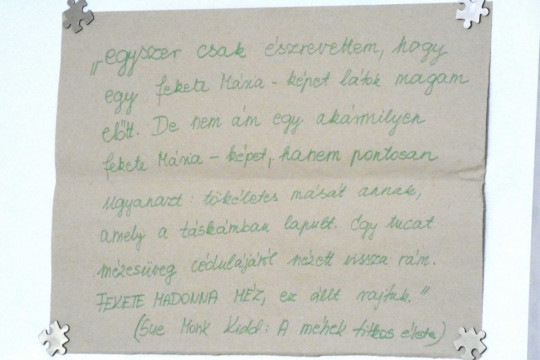 „egyszer csak észrevettem, hogy
egy fekete Mária-képet látok magam
előtt. De nem ám egy akármilyen
fekete Mária-képet, hanem pontosan
ugyanazt: tökéletes mását annak,
amely a táskámban lapult. Egy tucat
mézesüveg cédulájáról nézett vissza rám.
FEKETE MADONNA MÉZ, ez állt rajtuk."
(Sue Monk Kidd: A méhek titkos élete)